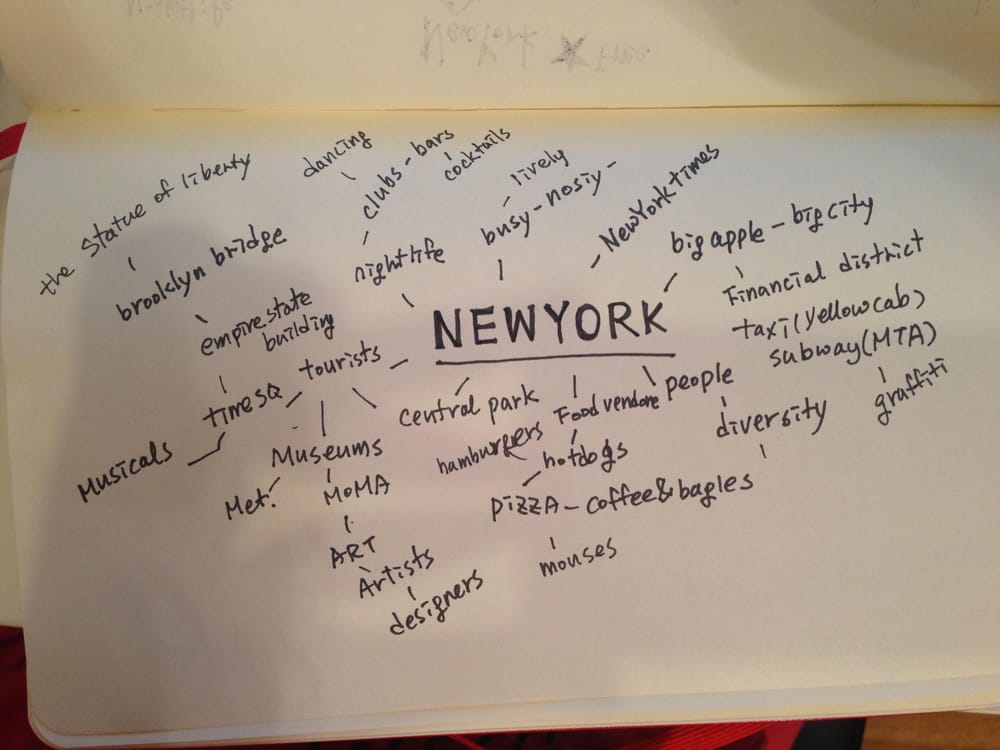 New York ★ Free
the statue of liberty
brooklyn bridge
empire state
building
tourists
times Q
Musicals
Museums
Met.
MOMA
ART
Artists
designers
dancing
clubs - bars
cocktails
nightlife
lively
busy - nosiy -
NewYork times
big apple - big city
Financial district
taxi (yellow cab)
subway (MTA)
graffiti
NEWYORK
central park
Food vendore
people
hamburgers
hotdogs
diversity
pizza - coffee & bagles
mouses